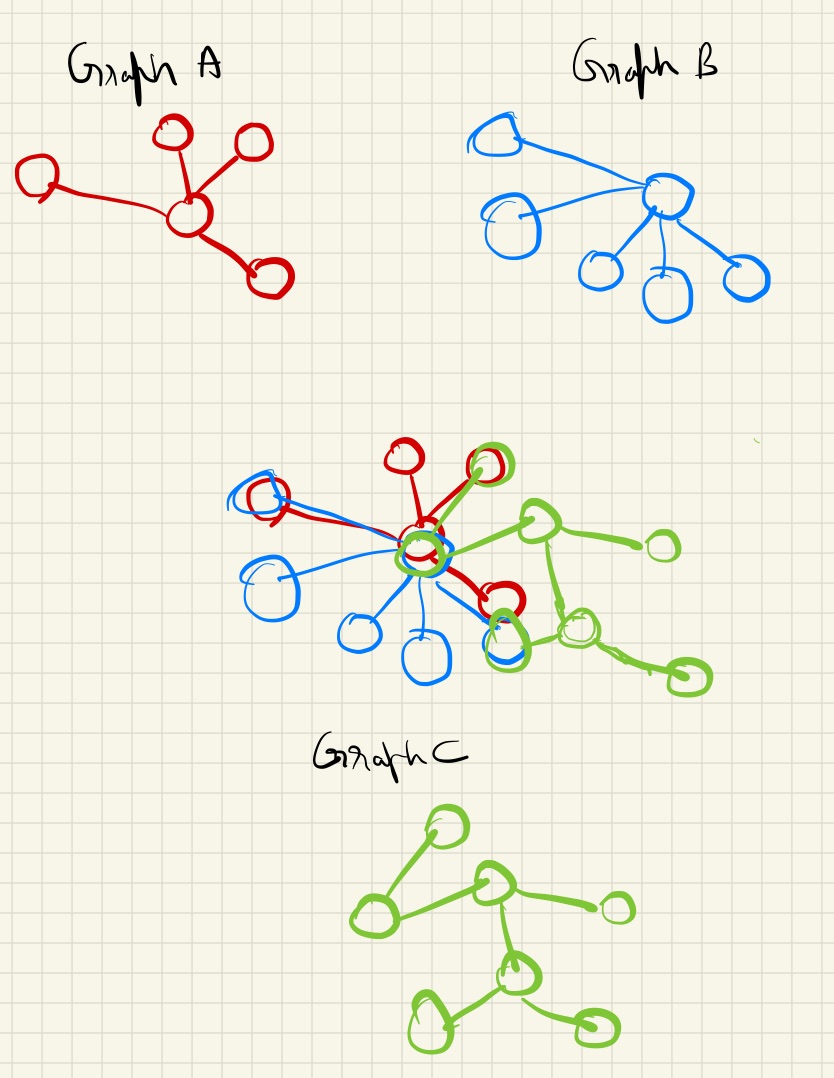 Graph A
Graph B
Graph C